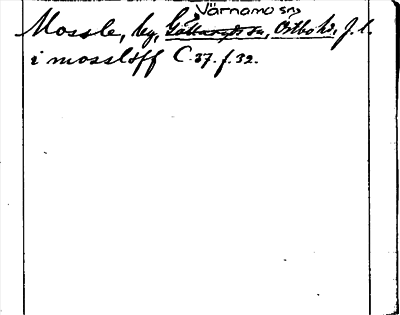 Värnamo sn
Mossle, by, Östbo hd, J. l.
i mosslöff C. 37. f. 32.